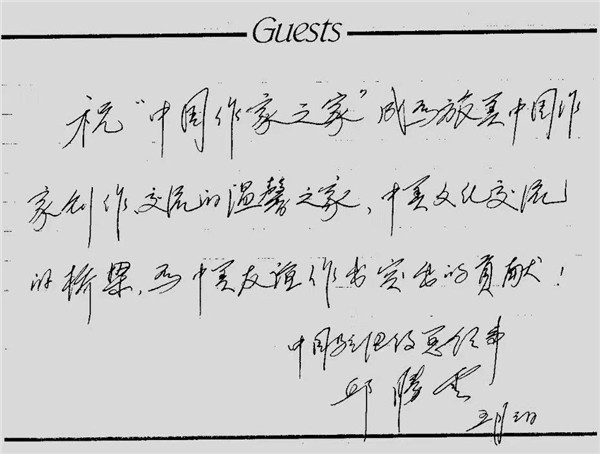 Guests
祝“中国作家之家”成为旅美中国作
家创作、交流的温馨之家、中美文化交流
的桥梁,为中美友谊作出突出的贡献!
中国驻纽约总领事
邱胜云